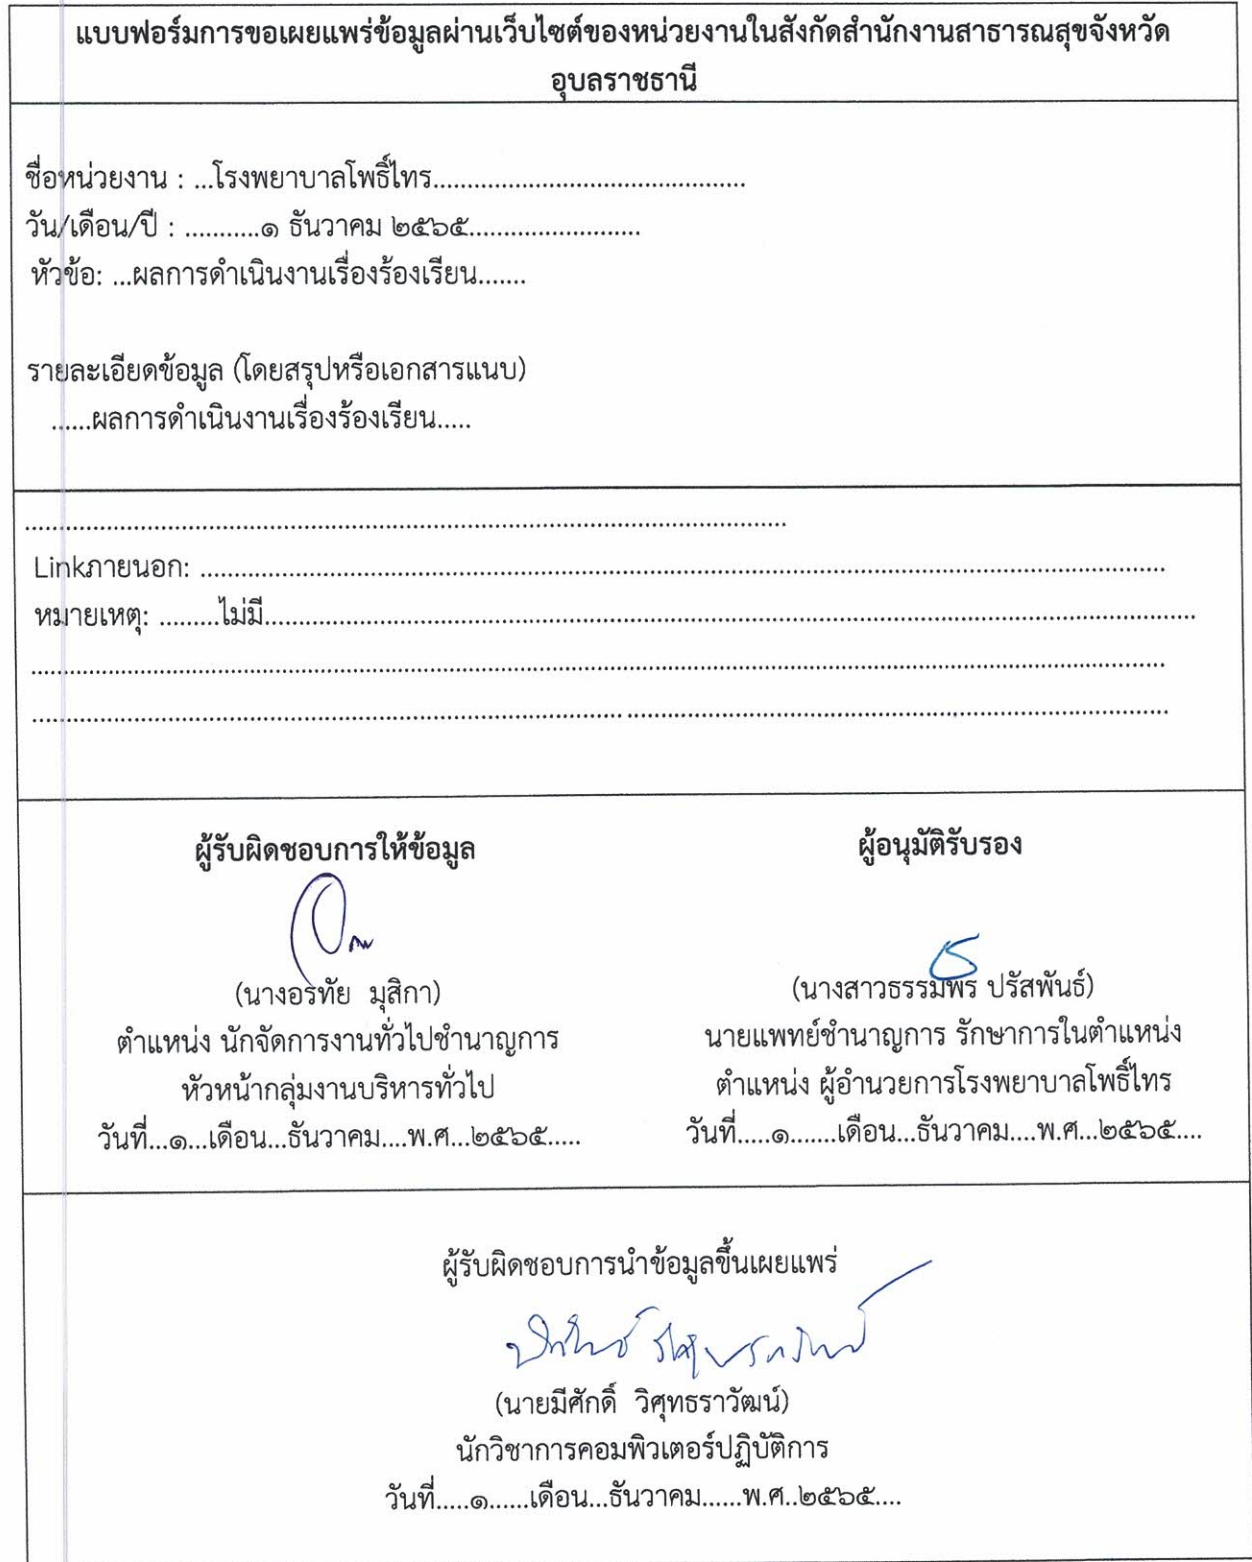 แบบฟอร์มการขอเผยแพร่ข้อมูลผ่านเว็บไซต์ของหน่วยงานในสังกัดสำนักงานสาธารณสุขจังหวัด
อุบลราชธานี
ชื่อหน่วยงาน : ...โรงพยาบาลโพธิ์ไทร.............................................
วัน/เดือน/ปี : ...........๑ ธันวาคม ๒๕๖๕.........................
หัวข้อ: ...ผลการดำเนินงานเรื่องร้องเรียน.......
รายละเอียดข้อมูล (โดยสรุปหรือเอกสารแนบ)
......ผลการดำเนินงานเรื่องร้องเรียน.....
..............................................................................................................
Linkภายนอก: ............................................................................................................................................
หมายเหตุ: .........ไม่มี.......................................................................................................................................
....................................................................................................................................................................
....................................................................................................................................................................
ผู้รับผิดชอบการให้ข้อมูล
(นางอรทัย มุสิกา)
ตำแหน่ง นักจัดการงานทั่วไปชำนาญการ
หัวหน้ากลุ่มงานบริหารทั่วไป
วันที่...๑...เดือน...ธันวาคม....พ.ศ...๒๕๖๕.....
ผู้อนุมัติรับรอง
(นางสาวธรรมพร ปรัสพันธ์)
นายแพทย์ชำนาญการ รักษาการในตำแหน่ง
ตำแหน่ง ผู้อำนวยการโรงพยาบาลโพธิ์ไทร
วันที่.....๑.......เดือน...ธันวาคม....พ.ศ...๒๕๖๕....
ผู้รับผิดชอบการนำข้อมูลขึ้นเผยแพร่
(นายมีศักดิ์ วิศุทธราวัฒน์)
นักวิชาการคอมพิวเตอร์ปฏิบัติการ
วันที่.....๑......เดือน...ธันวาคม......พ.ศ..๒๕๖๕....